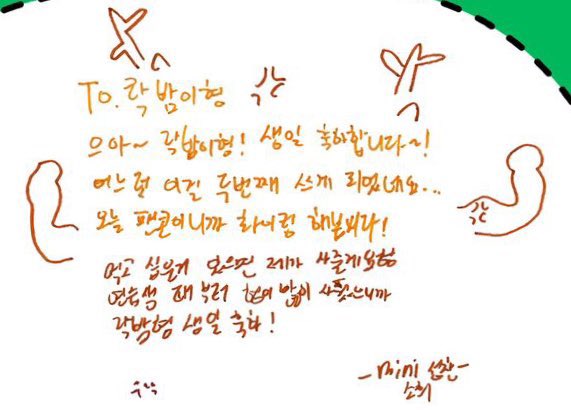 To. 락밤이형
으아~ 락밤이형! 생일 축하합니다~!
어느덧 여길 두번째 쓰게 되었네요...
오늘 팬콘이니까 화이팅 해봅시다!
먹고 싶은게 있으면 제가 사줄게요형
연습생 때부터 형이 많이 사줬으니까
락밤형 생일 축하!
-mini 성찬-
소희